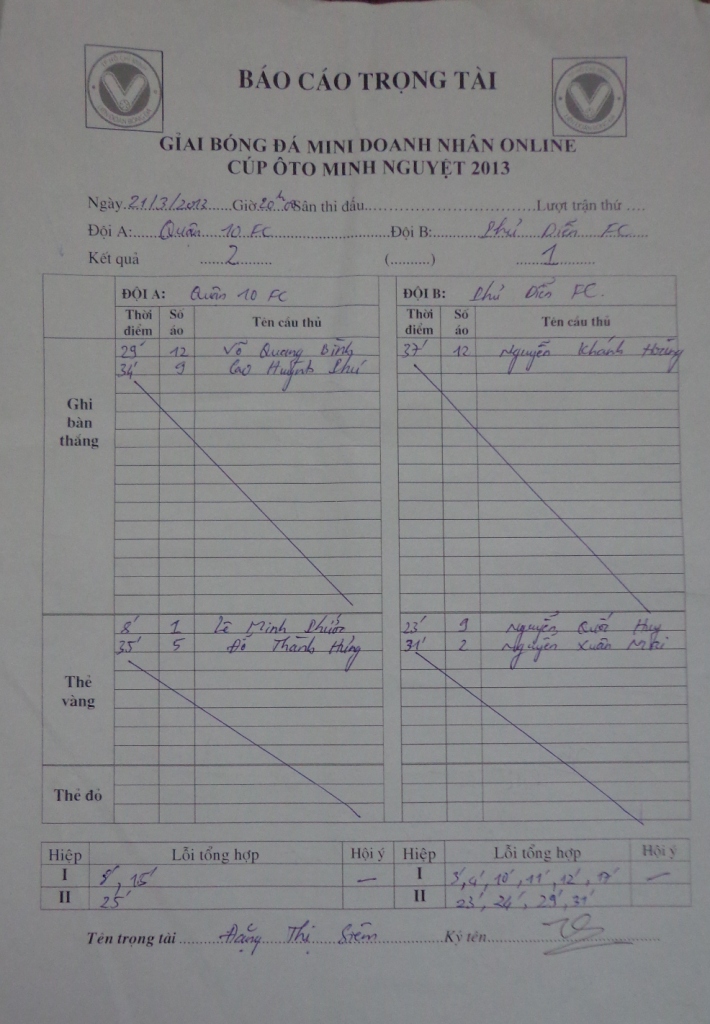 BÁO CÁO TRỌNG TÀI
GIẢI BÓNG ĐÁ MINI DOANH NHÂN ONLINE
CÚP ÔTO MINH NGUYỆT 2013
Ngày 21/3/2013 Giờ 20h00 Sân thi đấu Lượt trận thứ
Đội A: Quân 10 FC Đội B: Phú Diễn FC
Kết quả 2 (..........) 1
ĐỘI A: Quân 10 FC ĐỘI B: Phú Diễn FC.
Thời điểm Số áo Tên cầu thủ Thời điểm Số áo Tên cầu thủ
Ghi bàn thắng
29' 12 Võ Quang Bình 37' 12 Nguyễn Khánh Hoàng
34' 9 Cao Huỳnh Phú
Thẻ vàng
8' 1 Lê Minh Phước 23' 9 Nguyễn Quốc Huy
35' 5 Đỗ Thành Hưng 31' 2 Nguyễn Xuân Mai
Thẻ đỏ
Hiệp Lỗi tổng hợp Hội ý Hiệp Lỗi tổng hợp Hội ý
I 8', 15' — I 3', 4', 10', 11', 12', 17' —
II 25' II 23', 24', 29', 31'
Tên trọng tài Đặng Thị Ký tên